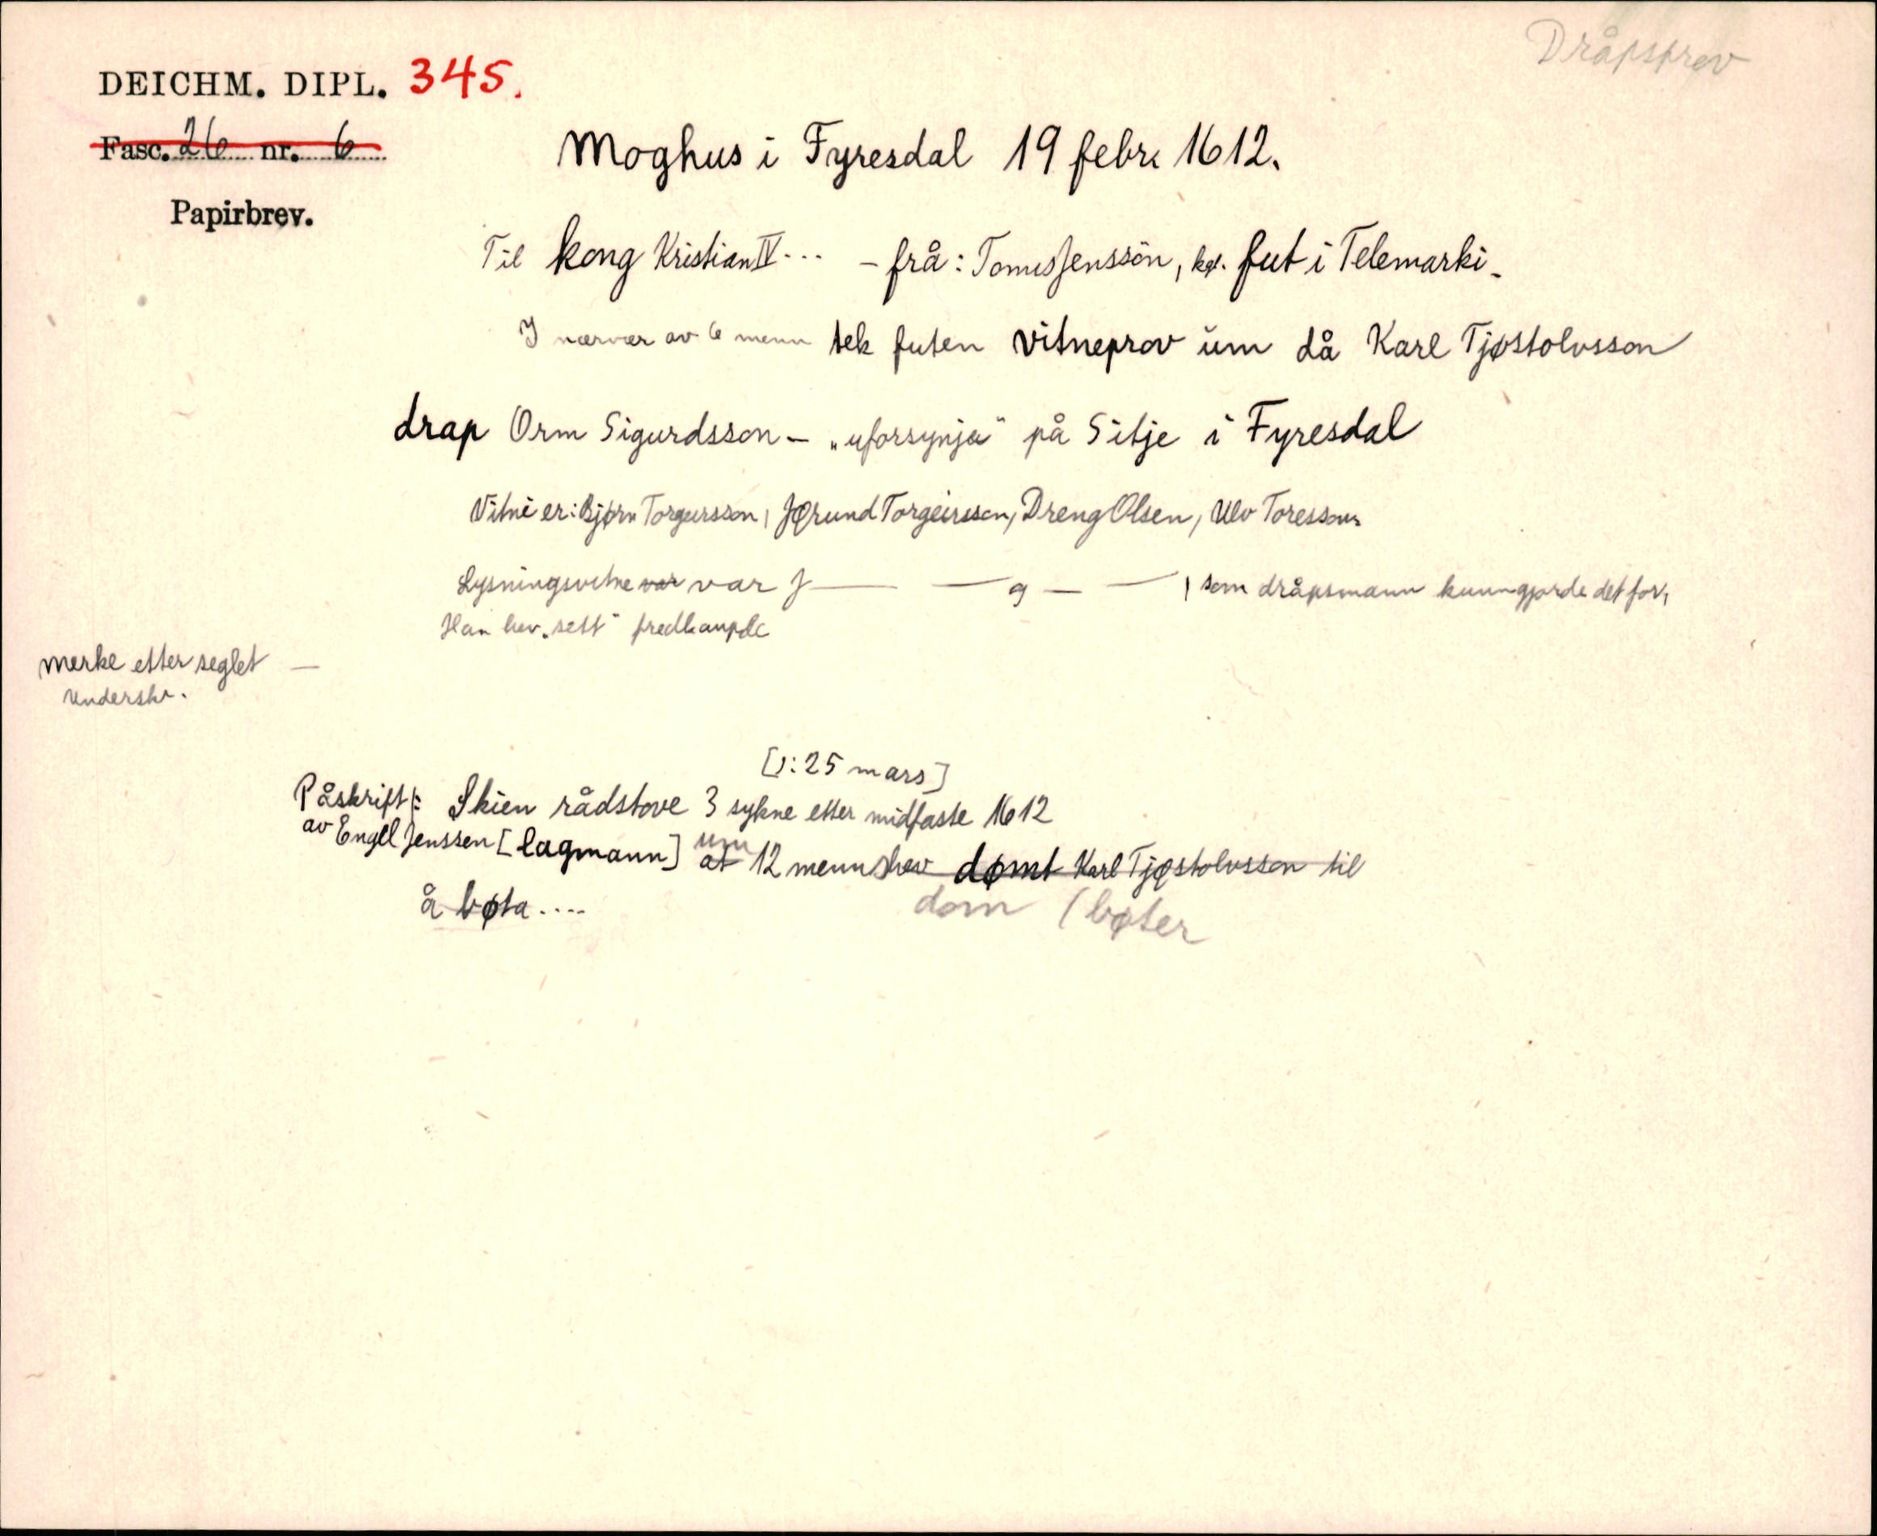 Dråpsprov
DEICHM. DIPL. 345.
Fasc. 26 nr. 6
Papirbrev.
Moghus i Fyresdal 19 febr. 1612.
Til kong Kristian IV ... - frå: Tomes Jenssön, kgl. fut i Telemarki.
I nærvær av 6 menn tek futen vitneprov um då Karl Tjøstolvsson
drap Orm Sigurdsson - „uforsynja" på Sitje i Fyresdal
Vitne er: Bjørn Torgeirsson, Jørund Torgeirsson, Dreng Olsen, Ulv Toresson.
Lysningsvitne var var J— —g— —, som dråpsmann kunngjorde det for,
Han hev „sett" fredkaup
merke etter seglet —
Underskr.
[ɔ: 25 mars]
Påskrift: Skien rådstove 3 sykne etter midfaste 1612
av Engel Jenssen [lagmann] at um 12 menn hev dømt Karl Tjøstolvsson til
å bøta ....
dom / bøter